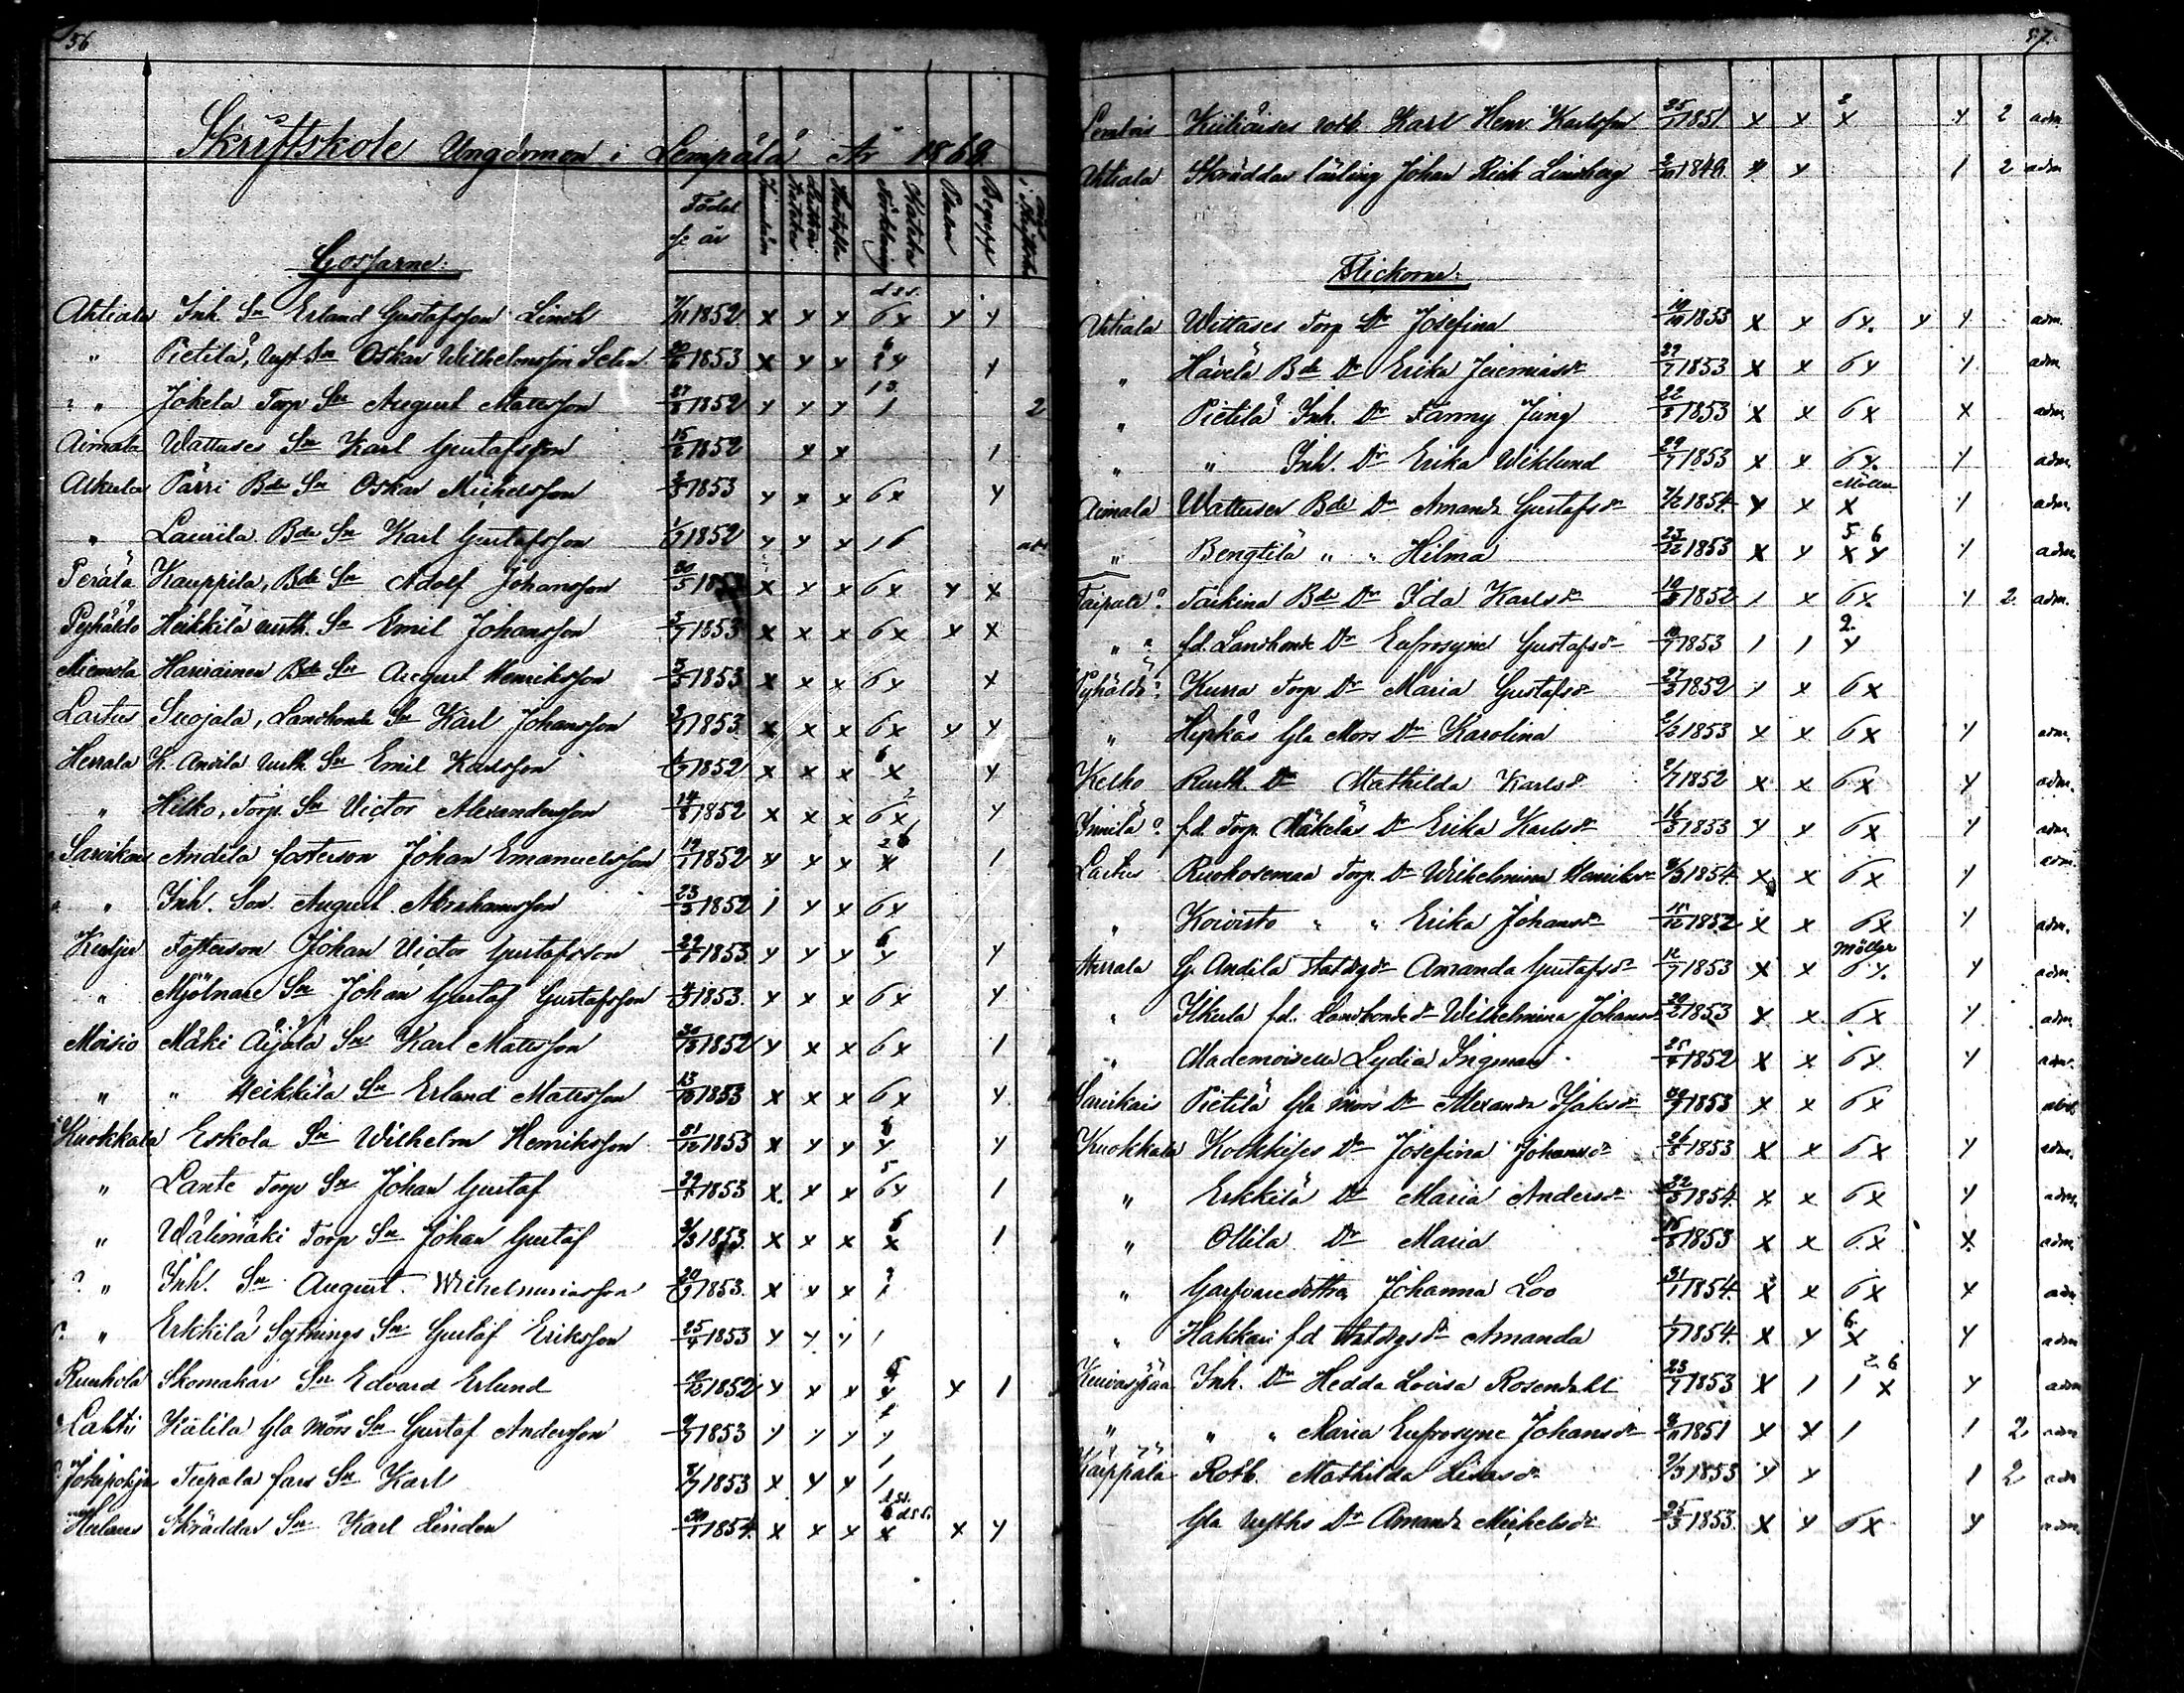 56
Skriftskole Ungdomen i Lempälä År 1869.
Födel se år Innanläsn Luthers Kateches Hustafla Kateches Förklaring Psalm Begrepp
Gossarne:
d.s.s.
Ahtiala Inh. Sn Erland Gustafsson Lindh 7/11 1852 x x x 6x x x
" Pietilä, Sn Oskar Wilhelmsson 1853 x x x x x
" Jokela Torp Sn August Matsson 27/8 1852 x x x 1 2
Aimala Wattuses Sn Karl Gustafsson 15/2 1852 x x 1
Aikula Pärri Bde Sn Oskar Michelsson 3/3 1853 x x x 6x x
" Laurila Bde Sn Karl Gustafsson 1/7 1852 x x x 1 6
Perälä Kauppila, Bde Sn Adolf Johansson 30/5 185 x x x 6x x x
Pyhältö Heikkilä Sn Emil Johansson 3/7 1853 x x x 6x x x
Niemola Hauiainen Bde Sn August Henriksson 3/3 1853 x x x 6x x
Lastus Suojala, Landbonde Sn Karl Johansson 3/7 1853 x x x 6x x x
Herrala K. Andila Sn Emil Karlsson 1852 x x x 6 x x
" Hilko, Torp. Sn Victor Alexandersson 14/8 1852 x x x 6x 2 x
Sarvikais Andila fosterson Johan Emanuelsson 14/1 1852 x x x 2 6 x 1
" Inh. Son August Abrahamsson 23/5 1852 1 x x 6x
Kulju Fosterson Johan Victor Gustafsson 29/6 1853 x x x 6 x x
" Mjölnare Sn Johan Gustaf Gustafsson 4/3 1853 x x x 6x x
Moisio Mäki Äijälä Sn Karl Matsson 30/13 1852 x x x 6x 1
" " Heikkilä Sn Erland Matsson 13/10 1853 x x x 6x x
Kuokkala Eskola Sn Wilhelm Henriksson 31/12 1853 x x x 6 x x
" Lante Torp Sn Johan Gustaf 29/4 1853 x x x 5 6x 1
" Wälimäki Torp Sn Johan Gustaf 31/3 1853 x x x 6 x 1
" Inh. Sn August Wilhelminasson 20/9 1853 x x x 1
" Erkkilä Sytnings Sn Gustaf Eriksson 25/4 1853 x x x 1
Ruuhola Skomakar Sn Edvard Erlund 10/12 1852 x x x 6 x x 1
Lahti Kälilä Gla Mors Sn Gustaf Andersson 9/7 1853 x x x x
Jokipohja Tupala fars Sn Karl 1853 x x x 1
Hulaus Skräddar Sn Karl Linden 30/1 1854 x x x x x x

57.
Lembois Kiiliäises Karl Henr. Karlsson 25/1 1851 x x 2 x x 2 adm
Ahtiala Skräddar lärling Johan Rich Lindberg 3/10 1849 x x 1 2 adm
Flickorna:
Ahtiala Wittases Torp Dr Josefina 19/10 1853 x x 6x. x x adm.
" Häivelä Bde Dr Erika Jeremiasdr 29/7 1853 x x 6x x adm
" Pietilä Inh. Dr Fanny Jung 22/8 1853 x x 6x x adm
" " Inh. Dr Erika Wiklund 29/7 1853 x x 6x. x adm
Aimala Wattuses Bde Dr Amanda Gustafsdr 7/2 1854 x x Möller x x adm.
" Bengtilä " " Hilma 23/12 1853 x x 5 6 x x x adm.
Taipale Tarkina Bde Dr Ida Karlsdr 10/8 1852 1 x 6x. x 2 adm.
" fd. Landbonde Dr Eufrosyne Gustafsdr 10/7 1853 1 1 2. x
Pyhältö Kurra Torp Dr Maria Gustafsdr 27/3 1852 x x 6x
" Hipkäs Gla Mors Dr Karolina 2/2 1853 x x 6x x adm.
Kelho Rusth. Dr Mathilda Karlsdr 2/7 1852 x x 6x x adm.
Innilä fd. Torp. Mäkeläs Dr Erika Karlsdr 16/3 1853 x x 6x x adm.
Lastus Ruokosemaa Torp Dr Wilhelmina Henriksdr 9/3 1854 x x 6x x adm
" Koivisto " " Erika Johansdr 15/12 1852 x x 6x x adm.
Herrala G. Andila Statdrgdr Amanda Gustafsdr 12/7 1853 x x Möller 6x. x adm
" Ilkula fd. Landbonde dr Wilhelmina Johansdr 20/2 1853 x x 6x x adm.
" Mademoiselle Lydia Ingman 25/4 1852 x x 6x x adm.
Sarvikais Pietilä Gla mors Dr Alexandra Isaksdr 1853 x x 6x
Kuokkala Kolkkises Dr Josefina Johansdr 26/8 1853 x x 6x x adm.
" Erkkilä Dr Maria Andersdr 22/3 1854 x x 6x x adm
" Ollila Dr Maria 15/8 1853 x x 6x x adm.
" Garfvaredotter Johanna Loo 31/1 1854. x x 6x x adm
" Hakkari fd Statdrgsdr Amanda 1/7 1854. x x 6. x x adm
Kuivaspää Inh. Dr Hedda Lovisa Rosendahl 23/7 1853 x 1 1 2 6 x x adm
" " " Maria Eufrosyne Johansdr 1851 x x 1 1 2 adm
Käippälä Rotb. Mathilda Lisasdr 9/3 1853 x x 1 2 adm
Gla Dr Amanda Michelsdr 25/3 1853 x x 6x x adm.